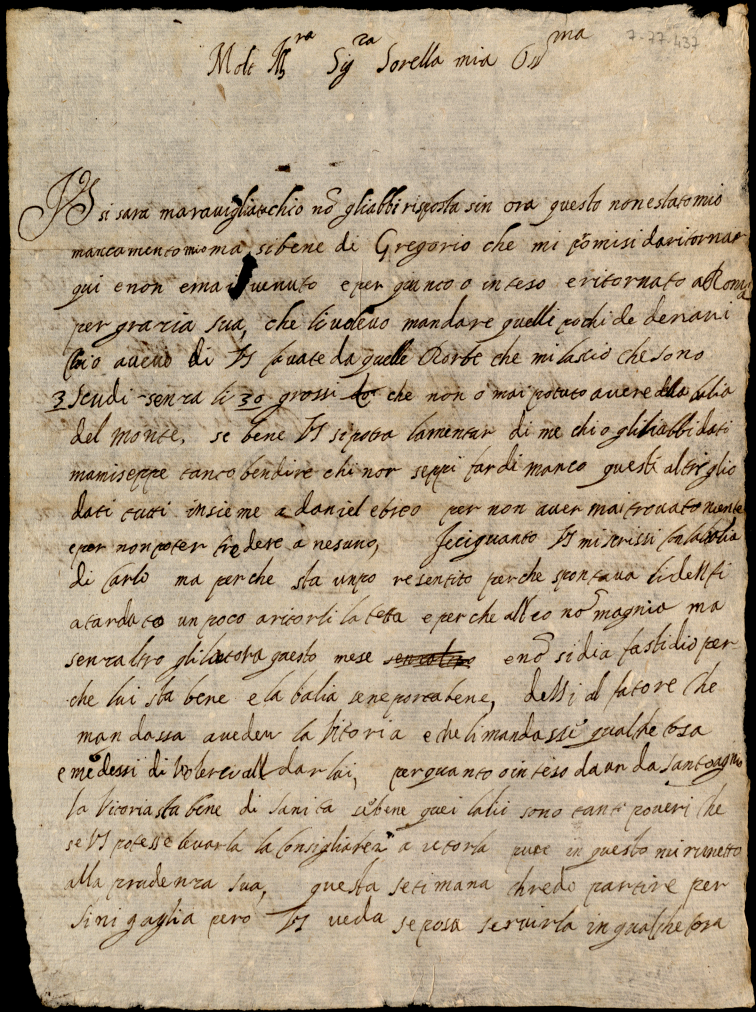 7-77-437
Molt Ill^ra Sig^ra Sorella mia Oss^ma
VS si sara maravigliata chio nõ gliabbi risposta sin ora questo non e stato mio
mancamento mio ma si bene di Gregorio che mi promisi da ritornar
qui e non e mai venuto e per quinco o inteso e ritornato a Roma
per grazia sua, che li volevo mandare quelli pochi de denari
chio avevo di VS cavate da quelle Robbe che mi lascio che sono
3 scudi senza li 30 grossi che non o mai potuto avere della balia
del monte, se bene VS si potra lamentar di me chi o gli li abbi dati
ma mi seppe tanto ben dire chi nor seppi far di manco questi altri glio
dati tutti insieme a daniel ebreo per non aver mai trovato niente
e per non poter credere a nesuno, feci quanto VS mi scrissi con la balia
di Carlo ma perche sta un po resentito perche spontava li denti
a tardato un poco a ritorli la tetta e perche alleo nõ magnia ma
senzaltro gli la tora questo mese senzaltro e nõ si dia fastidio per
che lui sta bene e la balia se ne porta bene, dessi al fatore che
mandassa a veder la Vitoria e che li mandassi qualche cosa
e me dessi di volerci andar lui, per quanto o inteso da un da santo agnio
la Vitoria sta bene di sanita se bene quei balii sono tanti poveri che
se VS potesse levarla la Consigliarea a retorla pure in questo mi rimetto
alla prudenza sua, questa setimana chredo partire per
Sinigaglia pero VS veda se posa servirla in qualche cosa